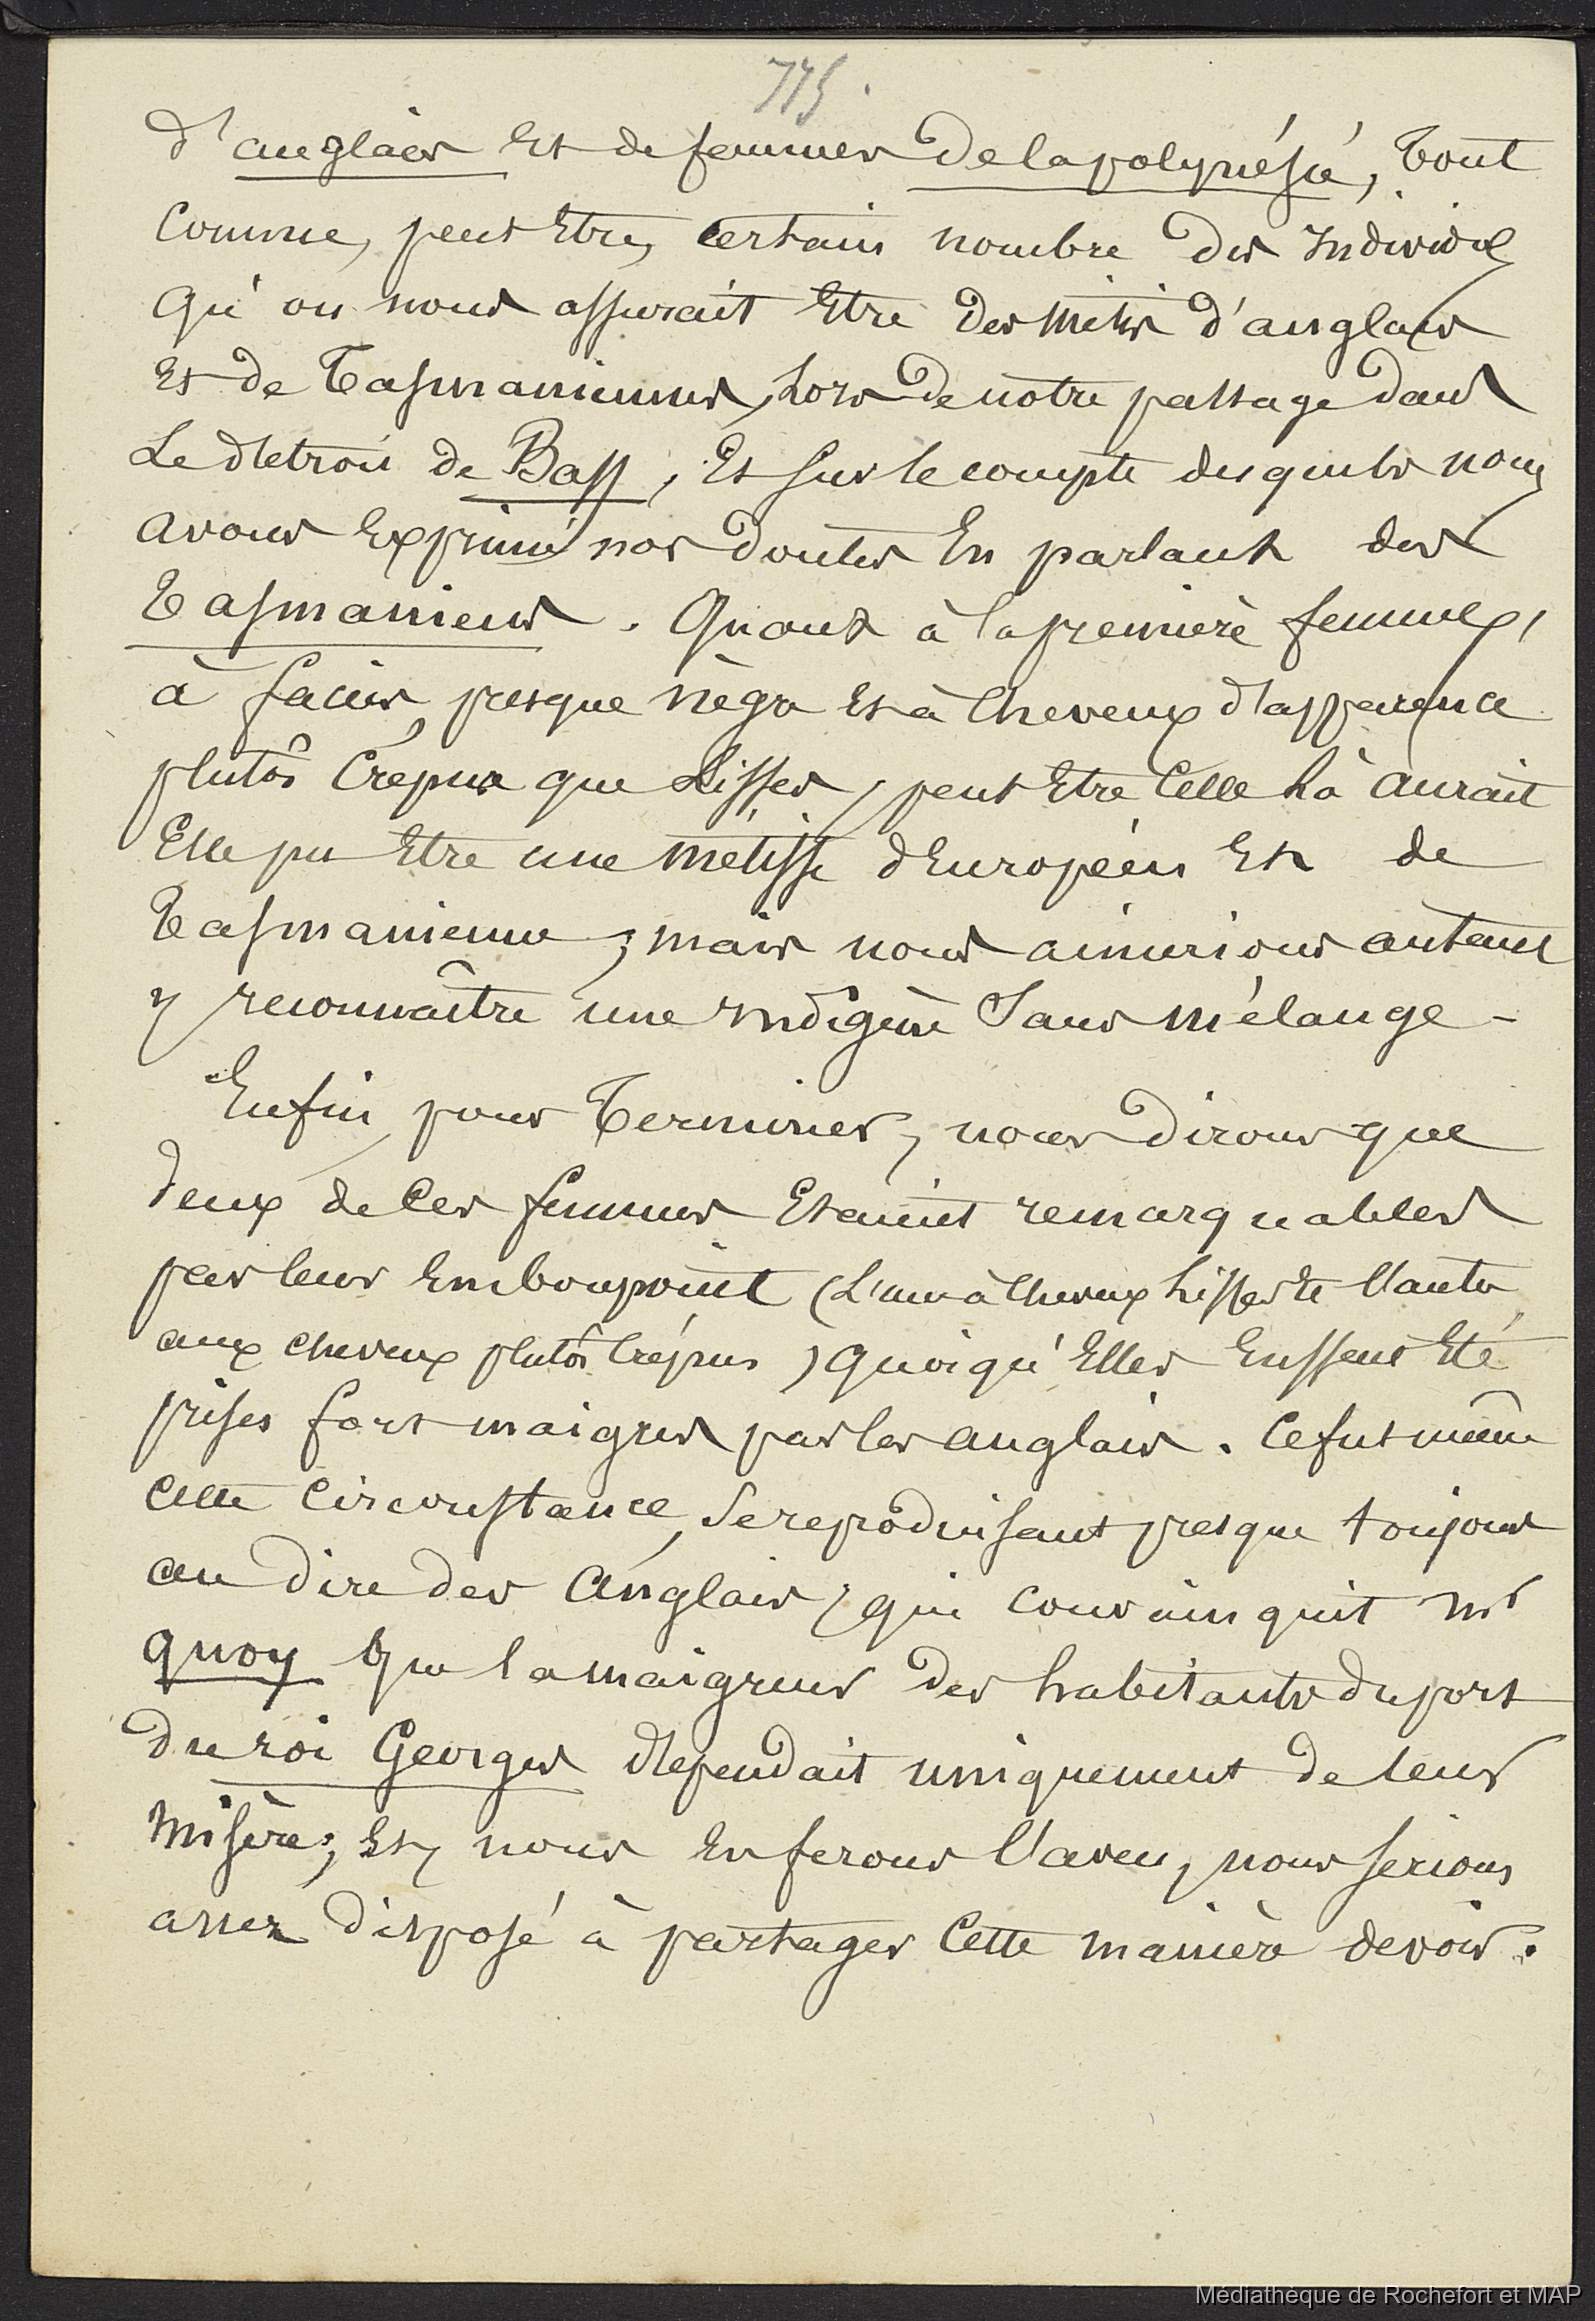 775.
d'anglais et de femmes de la polynésie, tout
comme, peut etre, certain nombre des individus
qu'on nous assurait etre des métis d'anglais
et de Tasmaniennes, lors de notre passage dans
le detroit de Bass, et sur le compte desquels nous
avons exprimé nos doutes en parlant des
Tasmaniens. Quant à la première femme,
à faciès presque nègre et à cheveux d'apparence
plutôt crepue que lisses, peut etre celle là aurait
elle pu etre une métisse d'Européen et de
Tasmanienne; mais nous aimerions autant
y reconnaître une indigène sans mélange -
Enfin, pour terminer, nous dirons que
deux de ces femmes etaient remarquables
par leur embonpoint (l'une à cheveux lisses et l'autre
aux cheveux plutôt crépus) quoiqu'elles eussent eté
prises fort maigres par les anglais. Ce fut même
cette circonstance, se reproduisant presque toujours
au dire des anglais, qui convainquit Mr
Quoy que la maigreur des habitants du port
du roi Georges dependait uniquement de leur
misère; et, nous en ferons l'aveu, nous serions
assez disposé à partager cette manière de voir.
Médiathèque de Rochefort et MAP